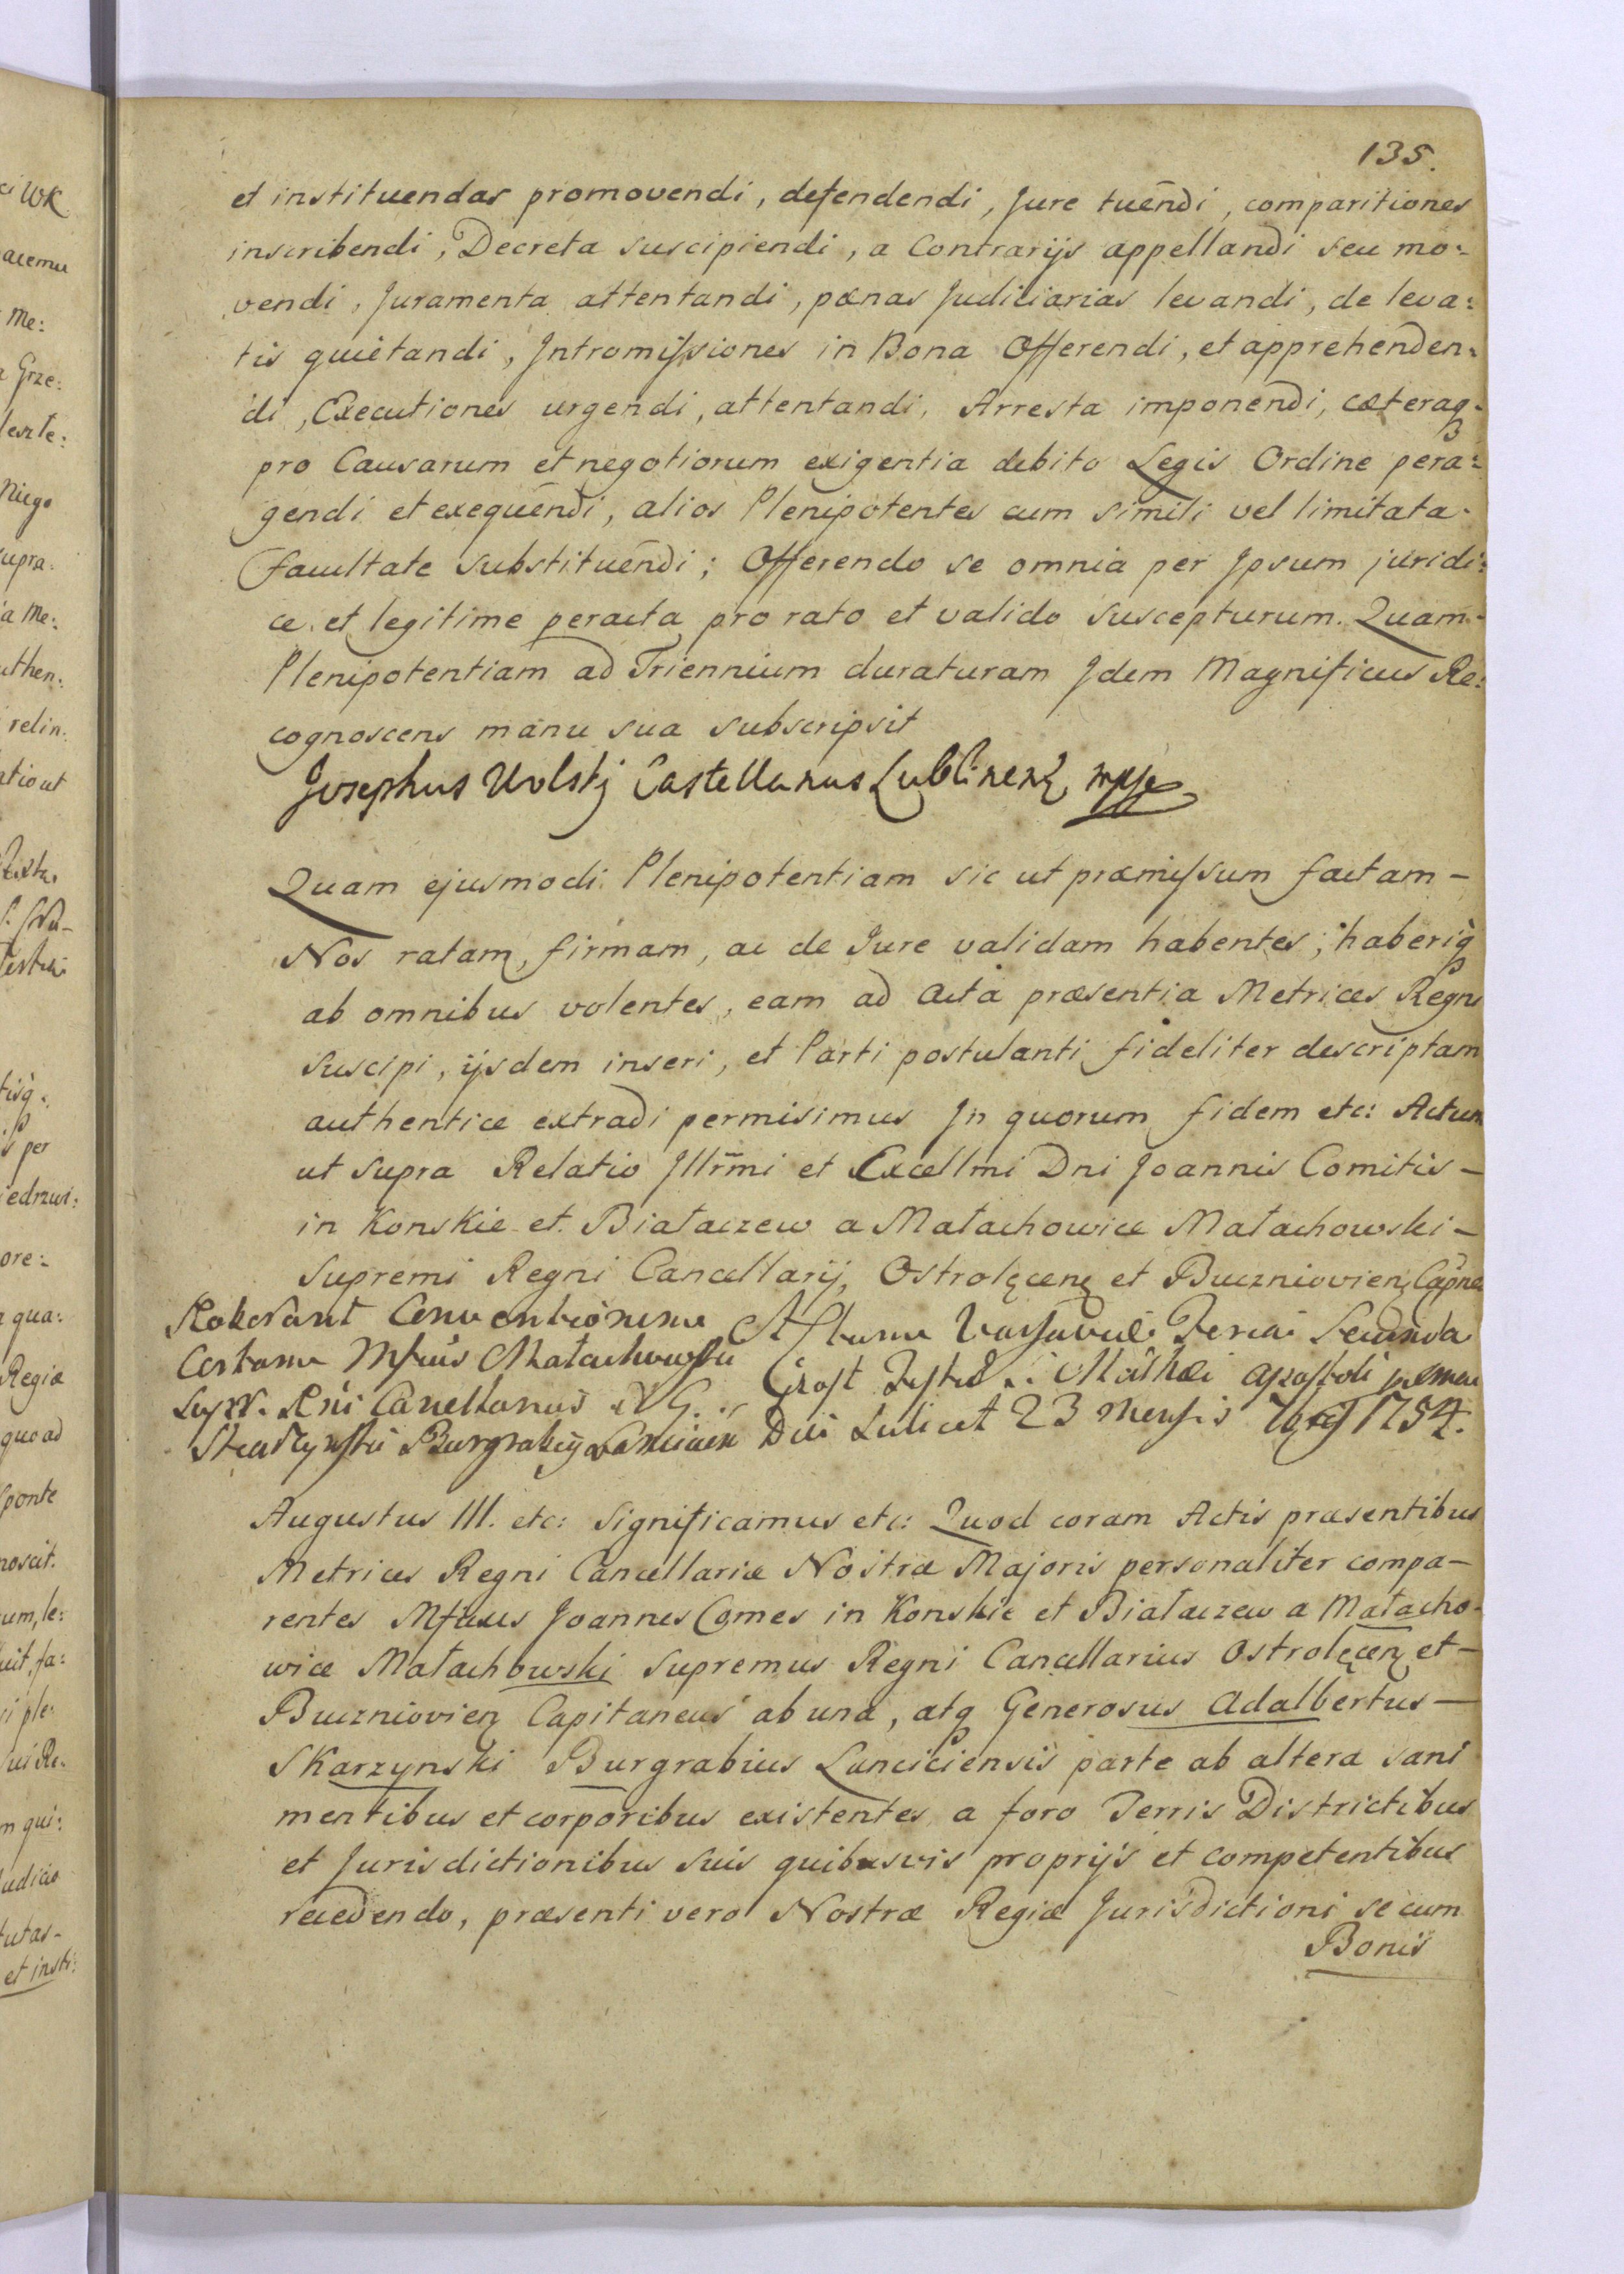 135.
et instituendas promovendi, defendendi, Jure tuēndi, comparitiones
inscribendi, Decreta suscipiendi, a Contrarijs appellandi seu mo=
vendi, Juramenta attentandi, pænas Judiciarias levandi, de leva=
tis quietandi, Intromissiones in Bona Offerendi, et apprehenden=
di, Executiones urgendi, attentandi, Arresta imponendi, cæteraq
pro Causarum et negotiorum exigentia debito Legis Ordine pera=
gendi et exequēndi, alios Plenipotentes cum simili vel limitata
facultate substituēndi; Offerendo se omnia per Ipsum juridi=
ce et legitime peracta pro rato et valido suscepturum. Quam
Plenipotentiam ad Triennium duraturam Idem Magnificus Re=
cognoscens manu sua subscripsit
Josephus Wolskj Castellanus Lublinenę mpp
Quam ejusmodi Plenipotentiam sic ut præmissum factam –
Nos ratam, firmam, ac de Jure validam habentes; haberiq
ab omnibus volentes, eam ad Acta præsentia Metrices Regni
suscipi, ijsdem inseri, et Parti postulanti fideliter descriptam
authentice extradi permisimus In quorum fidem etc: Actum
ut supra Relatio Illr̄mi et Excellmi Dni Joannis Comitis –
in Konskie et Białaczew a Małachowice Małachowski –
Supremi Regni Cancellarij, Ostrolęcenę et Buczniovienę Capne
Roborant Conventionem
Certam Mfcus Małachowski
Supr. Rni Cancellarius et G.
Skarzynski Burgrabij Lancicien
Actum Varsaviæ Feria Secunda
post Festum S. Mathæi Apostoli
Die scilicet 23 Mensis 7bris 1754.
Augustus III. etc: Significamus etc: Quod coram Actis præsentibus
Metrices Regni Cancellariæ Nostræ Majoris personaliter compa–
rentes Mfcus Joannes Comes in Konskie et Białaczew a Małacho
wice Małachowski Supremus Regni Cancellarius Ostrolęcenę et –
Buczniovienę Capitaneus ab una, atq Generosus Adalbertus –
Skarzynski Burgrabius Lanciciensis parte ab altera sani
mentibus et corporibus existentes a foro Terris Districtibus
et Jurisdictionibus suis quibusvis proprijs et competentibus
recedendo, præsenti vero Nostræ Regiæ Jurisdictioni se cum
Bonis